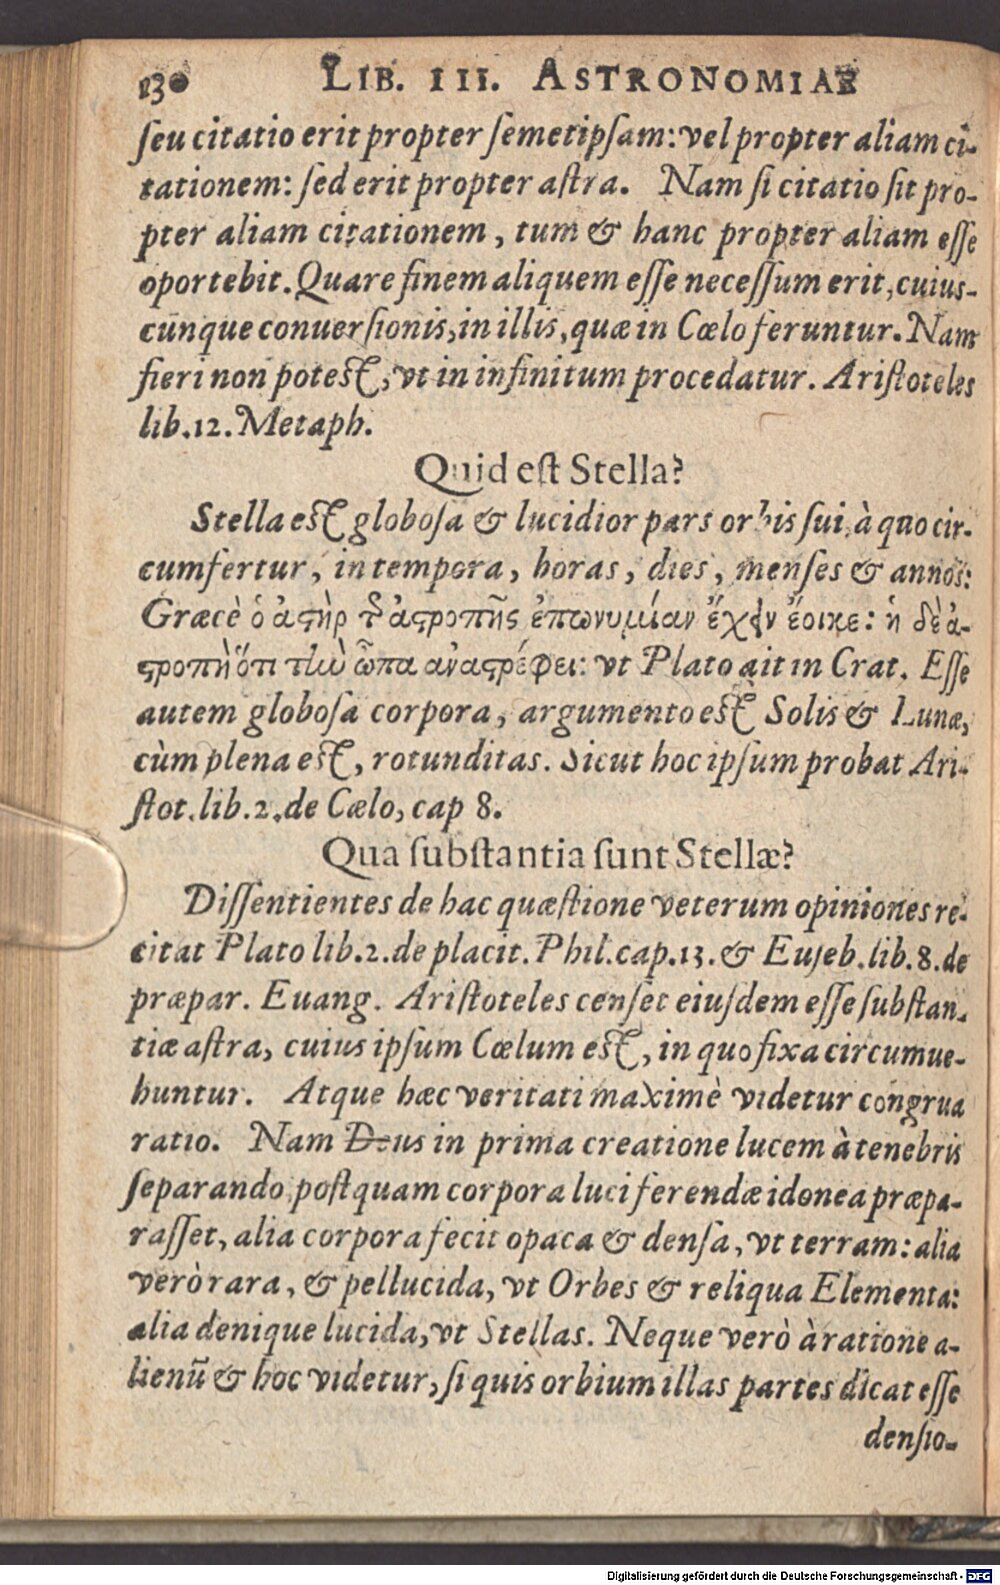 130 LIB. III. ASTRONOMIAE
ſeu citatio erit propter ſemetipſam: vel propter aliam ci-
tationem: ſed erit propter aſtra. Nam ſi citatio ſit pro-
pter aliam citationem, tum & hanc propter aliam eſſe
oportebit. Quare finem aliquem eſſe neceſſum erit, cuius-
cunque conuerſionis, in illis, quæ in Cœlo feruntur. Nam
fieri non poteſt, vt in infinitum procedatur. Ariſtoteles
lib.12. Metaph.
Quid eſt Stella?
Stella eſt globoſa & lucidior pars orbis ſui, à quo cir-
cumfertur, in tempora, horas, dies, menſes & annos:
Græcè ὁ ἀϛὴρ τῆς ἀϛροπῆς ἐπωνυμίαν ἔχειν ἔοικε: ἡ δὲ ἀ-
ϛροπὴ ὅτι τὼ ὦπα ἀναϛρέφει: vt Plato ait in Crat. Eſſe
autem globoſa corpora, argumento eſt Solis & Lunæ,
cùm plena eſt, rotunditas. Sicut hoc ipſum probat Ari-
ſtot. lib.2. de Cælo, cap 8.
Qua ſubſtantia ſunt Stellæ?
Diſſentientes de hac quæſtione veterum opiniones re-
citat Plato lib.2. de placit. Phil. cap.13. & Euſeb. lib. 8. de
præpar. Euang. Ariſtoteles cenſet eiuſdem eſſe ſubſtan-
tiæ aſtra, cuius ipſum Cœlum eſt, in quo fixa circumue-
huntur. Atque hæc veritati maximè videtur congrua
ratio. Nam Deus in prima creatione lucem à tenebris
ſeparando, poſtquam corpora luci ferendæ idonea præpa-
raſſet, alia corpora fecit opaca & denſa, vt terram: alia
verò rara, & pellucida, vt Orbes & reliqua Elementa:
alia denique lucida, vt Stellas. Neque verò à ratione a-
lienū & hoc videtur, ſi quis orbium illas partes dicat eſſe
denſio-
Digitalisierung gefördert durch die Deutsche Forschungsgemeinschaft - DFG